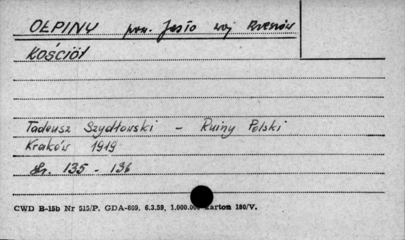 OŁPINY pow. Jasło woj Rzeszów
KOŚCIÓŁ
Tadeusz Szydłowski - Ruiny Polski
Kraków 1919
str. 135 - 136
CWD B-15b Nr 515/P. GDA-869. 6.3.59, 1.000.00 karton 180/V.